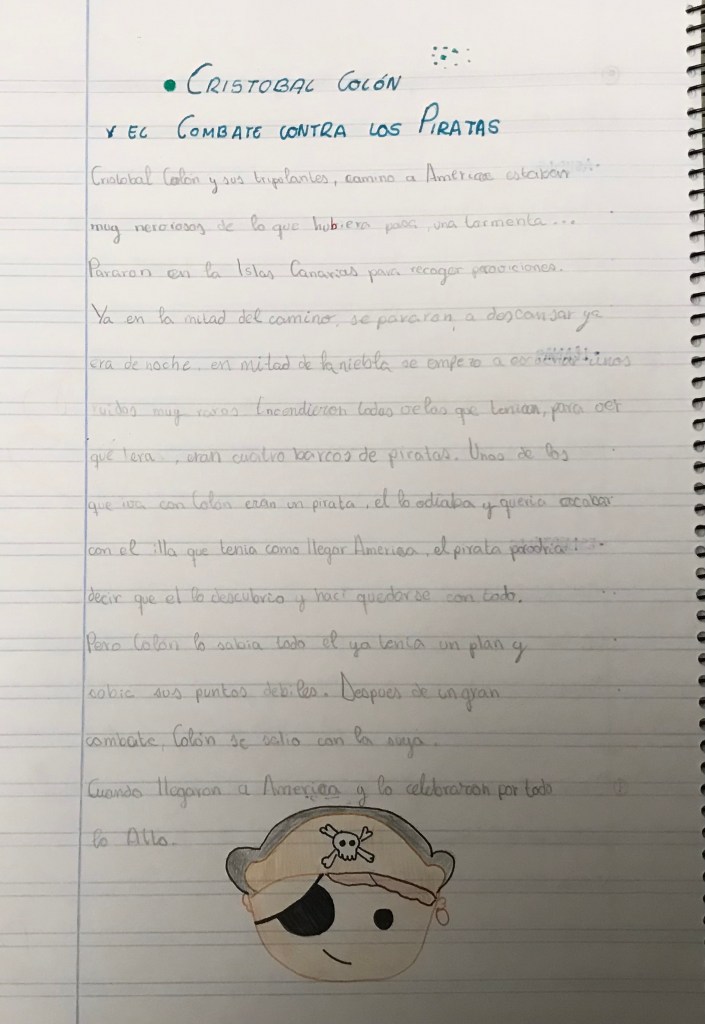 • CRISTOBAL COLÓN
Y EL COMBATE CONTRA LOS PIRATAS
Cristobal Colón y sus tripolantes, camino a America estaban
muy nerviosos de lo que hubiera pasa, una tormenta...
Pararon en la Islas Canarias para recoger proviciones.
Ya en la mitad del camino, se pararon a descansar ya
era de noche, en mitad de la niebla se empezo a unos
ruidos muy raros Encondieron todas velas que tenian, para ver
qué era, eran cuatro barcos de piratas. Unos de los
que iva con Colón eran un pirata, el lo odiaba y queria acabar
con el illa que tenia como llegar America, el pirata
decir que el lo descubrio y haci quedarse con todo.
Pero Colón lo sabia todo el ya tenia un plan y
sabie sus puntos débiles. Despues de un gran
combate, Colón se salio con la suya.
Cuando llegaron a America y lo celebraron por todo
lo Alto.